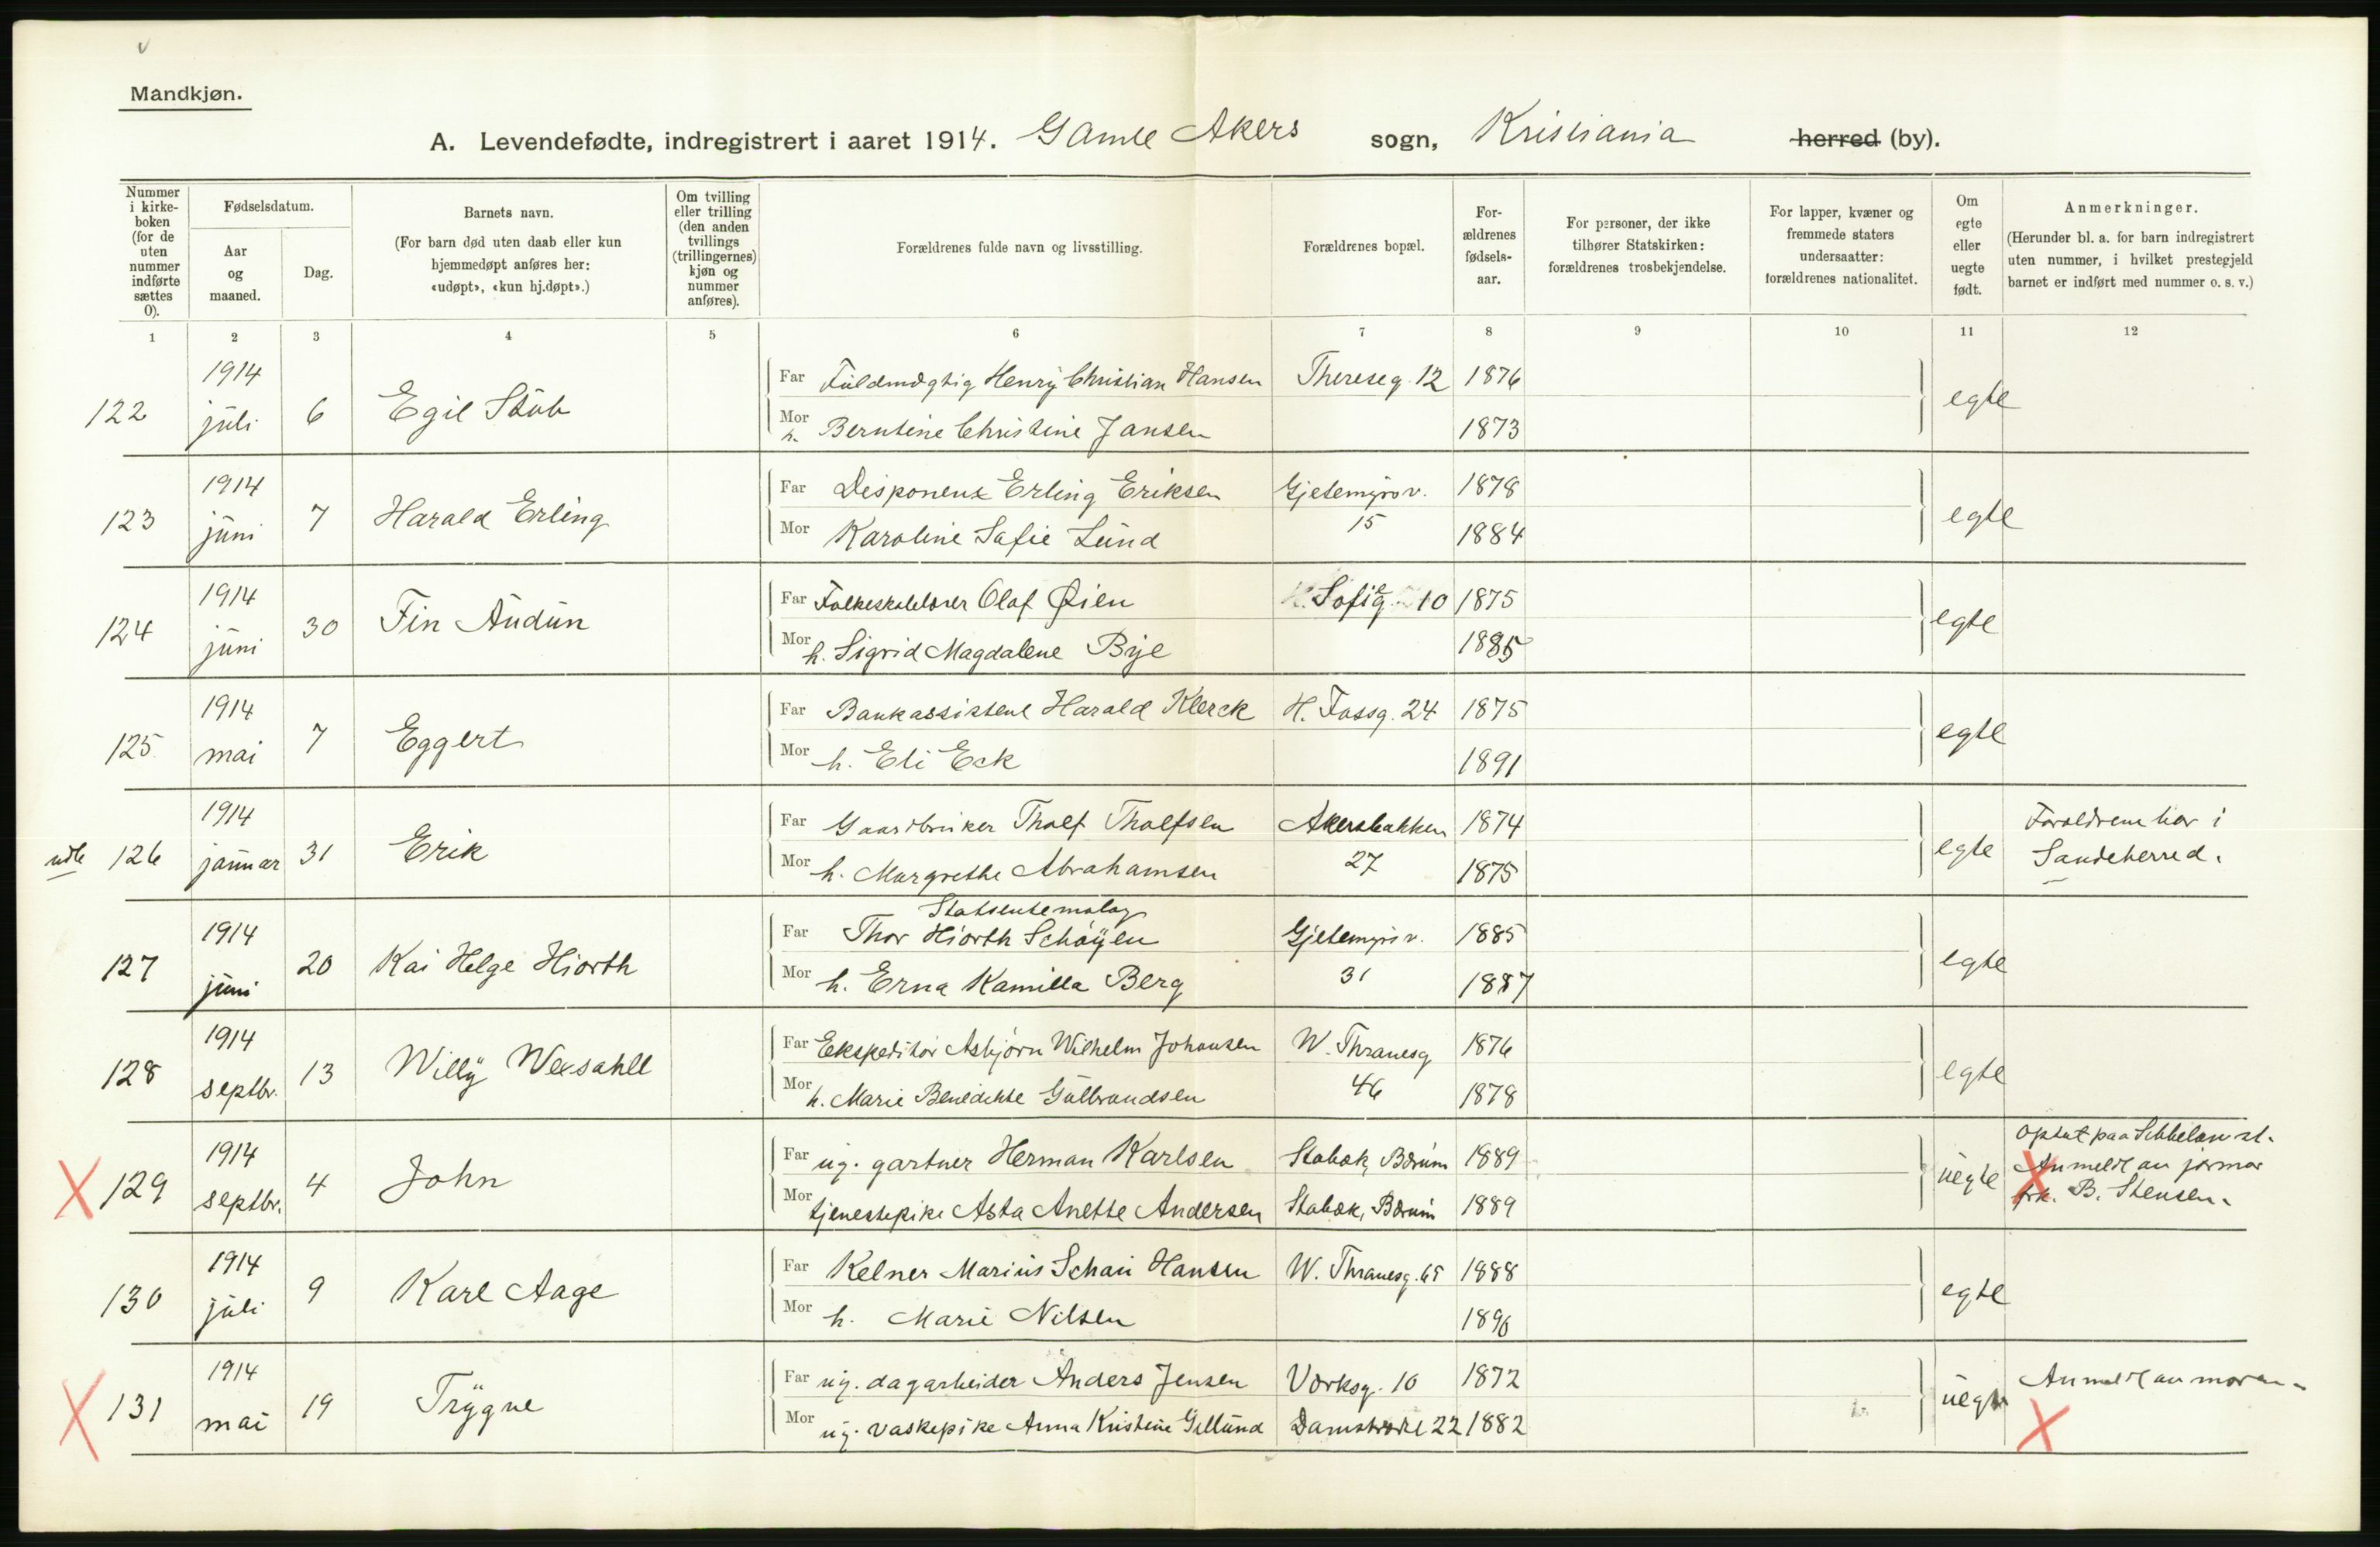 Mandkjøn.
A. Levendefødte, indregistrert i aaret 1914. Gamle Akers sogn, Kristiania herred (by).
Nummer i kirke-boken (for de uten nummer indførte sættes 0).
Fødselsdatum.
Aar og maaned.
Dag.
Barnets navn.
(For barn død uten daab eller kun hjemmedøpt anføres her: «udøpt», «kun hj.døpt».)
Om tvilling eller trilling (den anden tvillings (trillingernes) kjøn og nummer anføres).
Forældrenes fulde navn og livsstilling.
Forældrenes bopæl.
For-ældrenes fødsels-aar.
For personer, der ikke tilhører Statskirken: forældrenes trosbekjendelse.
For lapper, kvæner og fremmede staters undersaatter: forældrenes nationalitet.
Om egte eller uegte født.
Anmerkninger.
(Herunder bl. a. for barn indregistrert uten nummer, i hvilket prestegjeld barnet er indført med nummer o. s. v.)
1 2 3 4 5 6 7 8 9 10 11 12
122 1914 juli 6 Egil Stub Far Fuldmægtig Henry Christian Hansen Thereseg. 12 1876 egte
Mor h. Berntine Christine Jansen 1873
123 1914 juni 7 Harald Erling Far Disponent Erling Eriksen Gjetemyrsv. 15 1878 egte
Mor Karoline Safie Lund 1884
124 1914 juni 30 Fin Audun Far Folkeskolelærer Olaf Øien Sofieg. 10 1875 egte
Mor h. Sigrid Magdalene Bye 1885
125 1914 mai 7 Eggert Far Bankassistent Harald Klerck H. Fossg. 24 1875 egte
Mor h. Eli Eck 1891
126 1914 januar 31 Erik Far Gaardbruker Tholf Tholfsen Akersbakken 27 1874 egte Forældrene bor i Sandeherred.
Mor h. Margrethe Abrahamsen 1875
127 1914 juni 20 Kai Helge Hiorth Far Statsentomolog Thor Hiorth Schøyen Gjetemyrsv. 31 1885 egte
Mor h. Erna Kamilla Berg 1887
128 1914 septbr. 13 Willy Far Ekspeditør Asbjørn Wilhelm Johansen W. Thranesg 46 1876 egte
Mor h. Marie Benedikte Gulbrandsen 1878
X 129 1914 septbr. 4 John Far ug. gartner Herman Karlsen Stabæk, Bærum 1889 uegte Anmeldt av jormor frk. B. Stensen.
Mor tjenestepike Asta Anette Andersen Stabæk, Bærum 1889 X
130 1914 juli 9 Karl Aage Far Kelner Marius Schau Hansen W. Thranesg. 65 1888 egte
Mor h. Marie Nilsen 1890
X 131 1914 mai 19 Trygve Far ug. dagarbeider Anders Jensen Vorksg. 10 1872 uegte Anmeldt av moren.
Mor ug. vaskepike Anna Kristine Gullund Damstrædet 22 1882 X